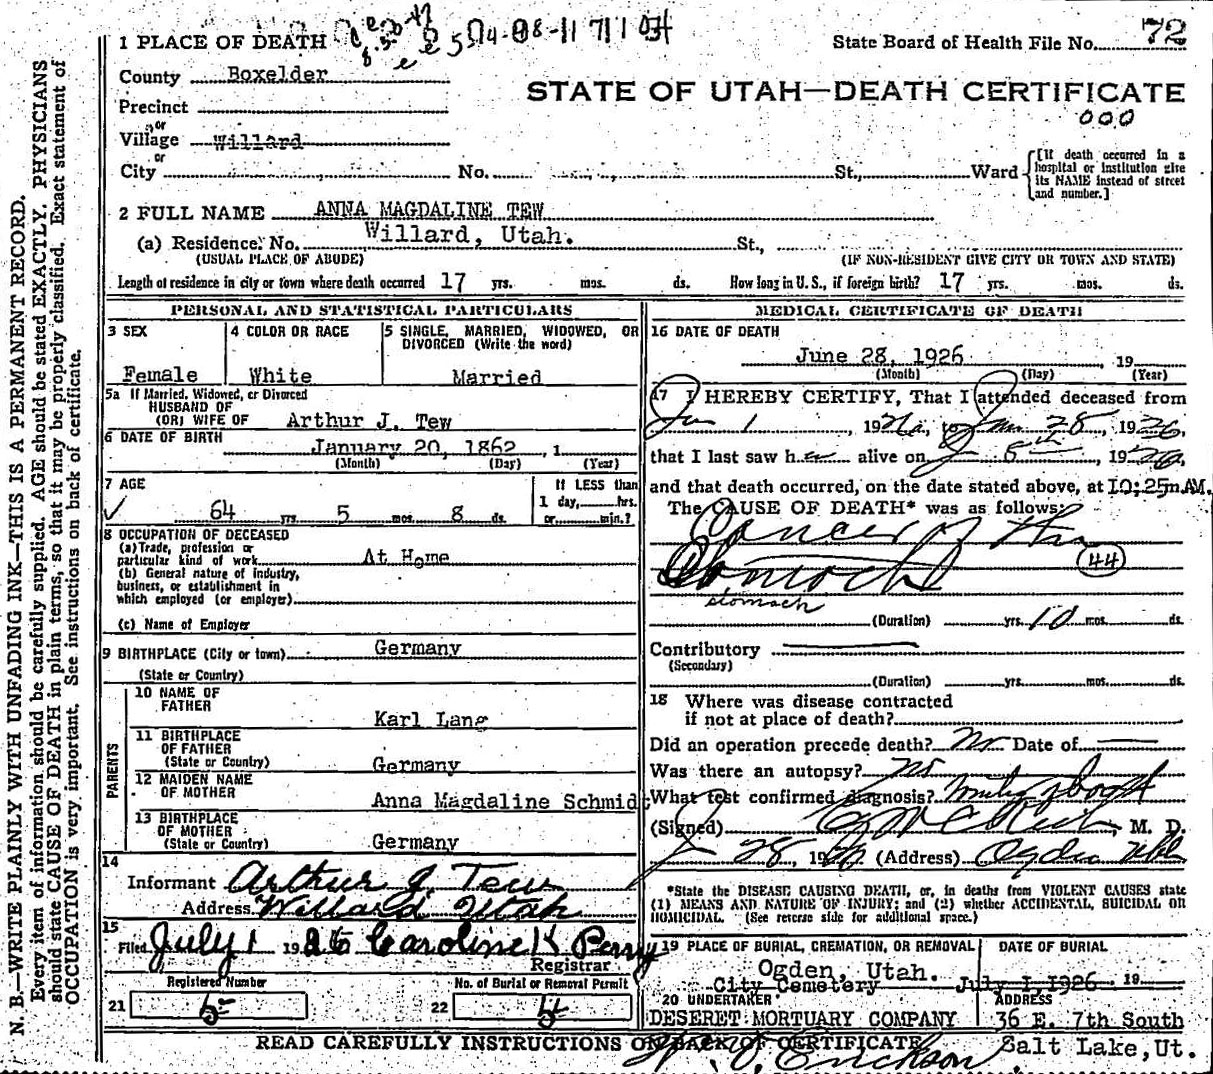 1 PLACE OF DEATH
State Board of Health File No. 72
County Boxelder
STATE OF UTAH—DEATH CERTIFICATE
000
Precinct
or
Village Willard
or
City No. St., Ward
[If death occurred in a hospital or institution give its NAME instead of street and number.]
2 FULL NAME ANNA MAGDALINE TEW
(a) Residence. No. Willard, Utah. St.,
(USUAL PLACE OF ABODE) (IF NON-RESIDENT GIVE CITY OR TOWN AND STATE)
Length of residence in city or town where death occurred 17 yrs. mos. ds. How long in U. S., if foreign birth? 17 yrs. mos. ds.
PERSONAL AND STATISTICAL PARTICULARS
3 SEX
Female
4 COLOR OR RACE
White
5 SINGLE, MARRIED, WIDOWED, OR DIVORCED (Write the word)
Married
5a If Married, Widowed, or Divorced
HUSBAND OF
(OR) WIFE OF Arthur J. Tew
6 DATE OF BIRTH
January 20, 1862, 1
(Month) (Day) (Year)
7 AGE
64 yrs. 5 mos. 8 ds.
If LESS than
1 day, hrs.
or min.?
8 OCCUPATION OF DECEASED
(a) Trade, profession or
particular kind of work At Home
(b) General nature of industry,
business, or establishment in
which employed (or employer)
(c) Name of Employer
9 BIRTHPLACE (City or town) Germany
(State or Country)
PARENTS
10 NAME OF
FATHER
Karl Lang
11 BIRTHPLACE
OF FATHER
(State or Country) Germany
12 MAIDEN NAME
OF MOTHER Anna Magdaline Schmid
13 BIRTHPLACE
OF MOTHER
(State or Country) Germany
14
Informant Arthur J. Tew
Address Willard Utah
15
Filed July 1 1926 Caroline K Perry
Registrar
Registered Number
21 5
No. of Burial or Removal Permit
22 5
MEDICAL CERTIFICATE OF DEATH
16 DATE OF DEATH
June 28, 1926, 19
(Month) (Day) (Year)
17 I HEREBY CERTIFY, That I attended deceased from
Jun 1, 1926, to Jun 28, 1926,
that I last saw her alive on J 8th, 1926,
and that death occurred, on the date stated above, at 10:25m AM.
The CAUSE OF DEATH* was as follows:
Cancer of the
Stomach
44
stomach
(Duration) yrs. 10 mos. ds.
Contributory
(Secondary)
(Duration) yrs. mos. ds.
18 Where was disease contracted
if not at place of death?
Did an operation precede death? No Date of
Was there an autopsy? no
What test confirmed diagnosis?
(Signed) M. D.
J 28, 1926 (Address) Ogden Utah
*State the DISEASE CAUSING DEATH, or, in deaths from VIOLENT CAUSES state
(1) MEANS AND NATURE OF INJURY; and (2) whether ACCIDENTAL, SUICIDAL OR
HOMICIDAL. (See reverse side for additional space.)
19 PLACE OF BURIAL, CREMATION, OR REMOVAL
Ogden, Utah.
City Cemetery
DATE OF BURIAL
July 1, 1926 19
20 UNDERTAKER
DESERET MORTUARY COMPANY
ADDRESS
36 E. 7th South
Salt Lake, Ut.
READ CAREFULLY INSTRUCTIONS ON BACK OF CERTIFICATE
Erickson
N. B.—WRITE PLAINLY WITH UNFADING INK—THIS IS A PERMANENT RECORD.
Every item of information should be carefully supplied. AGE should be stated EXACTLY. PHYSICIANS
should state CAUSE OF DEATH in plain terms, so that it may be properly classified. Exact statement of
OCCUPATION is very important. See instructions on back of certificate.